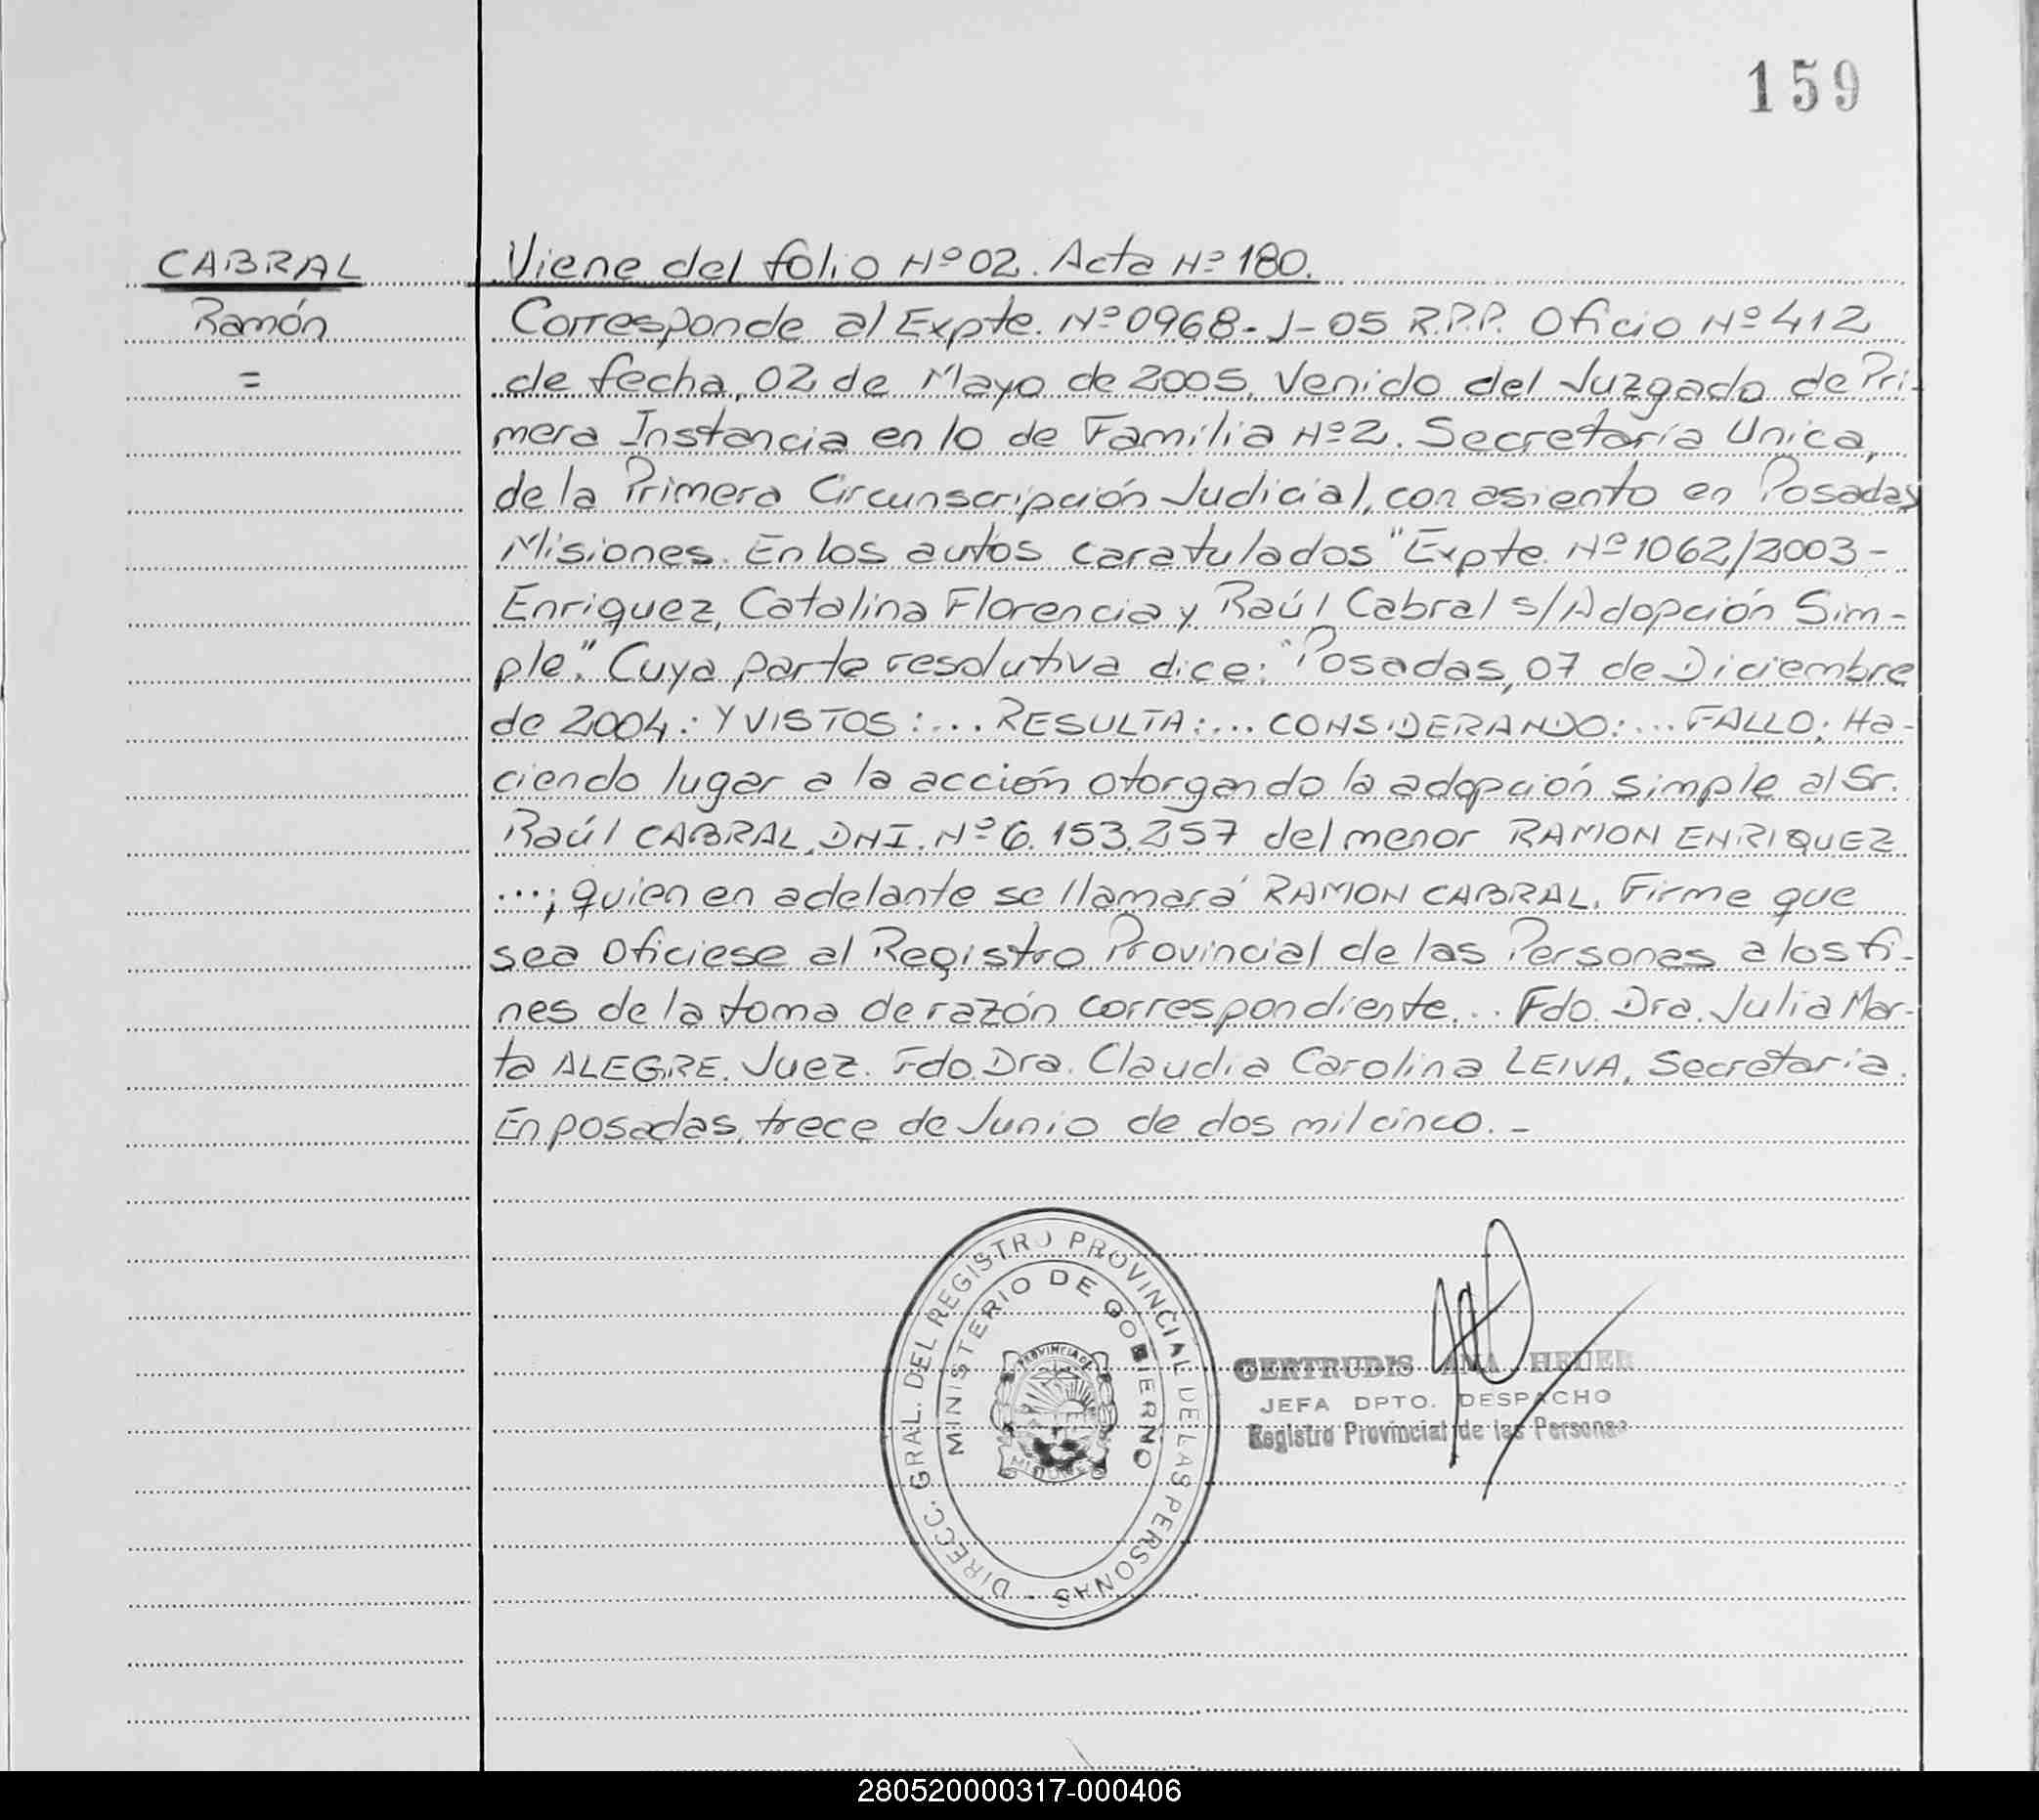 159
CABRAL
Ramón
=
Viene del folio Nº 02. Acta Nº 180.
Corresponde al Expte. Nº 0968-J-05 R.P.P. Oficio Nº 412
de fecha, 02 de Mayo de 2005. Venido del Juzgado de Pri-
mera Instancia en lo de Familia Nº 2. Secretaría Unica,
de la Primera Circunscripción Judicial, con asiento en Posadas
Misiones. En los autos caratulados "Expte. Nº 1062/2003-
Enriquez, Catalina Florencia y Raúl Cabral s/Adopción Sim-
ple". Cuya parte resolutiva dice: "Posadas, 07 de Diciembre
de 2004.: Y VISTOS:... RESULTA:... CONSIDERANDO:... FALLO: Ha-
ciendo lugar a la acción otorgando la adopción simple al Sr.
Raúl CABRAL, DNI. Nº 6.153.257 del menor RAMON ENRIQUEZ
...; quien en adelante se llamará RAMON CABRAL. Firme que
sea Ofíciese al Registro Provincial de las Personas a los fi-
nes de la toma de razón correspondiente... Fdo. Dra. Julia Mar-
ta ALEGRE. Juez. Fdo. Dra. Claudia Carolina LEIVA, Secretaria.
En posadas, trece de Junio de dos mil cinco. -
DIRECC. GRAL. DEL REGISTRO PROVINCIAL DE LAS PERSONAS -
MINISTERIO DE GOBIERNO
PROVINCIA DE
MISIONES
GERTRUDIS ANA HEUER
JEFA DPTO. DESPACHO
Registro Provincial de las Personas
280520000317-000406